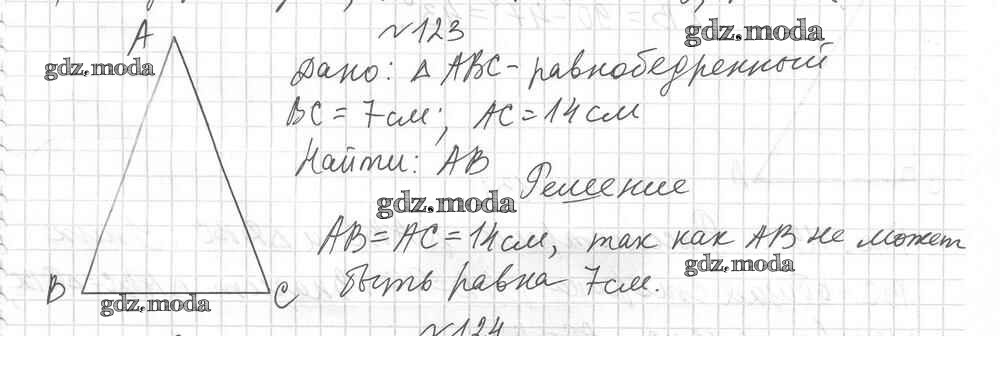 №123
A
gdz.moda
gdz.moda
Дано: Δ ABC - равнобедренный
BC = 7 см; AC = 14 см
Найти: AB
Решение
gdz.moda
AB = AC = 14 см, так как AB не может
быть равна 7 см.
gdz.moda
B
C
gdz.moda
№124